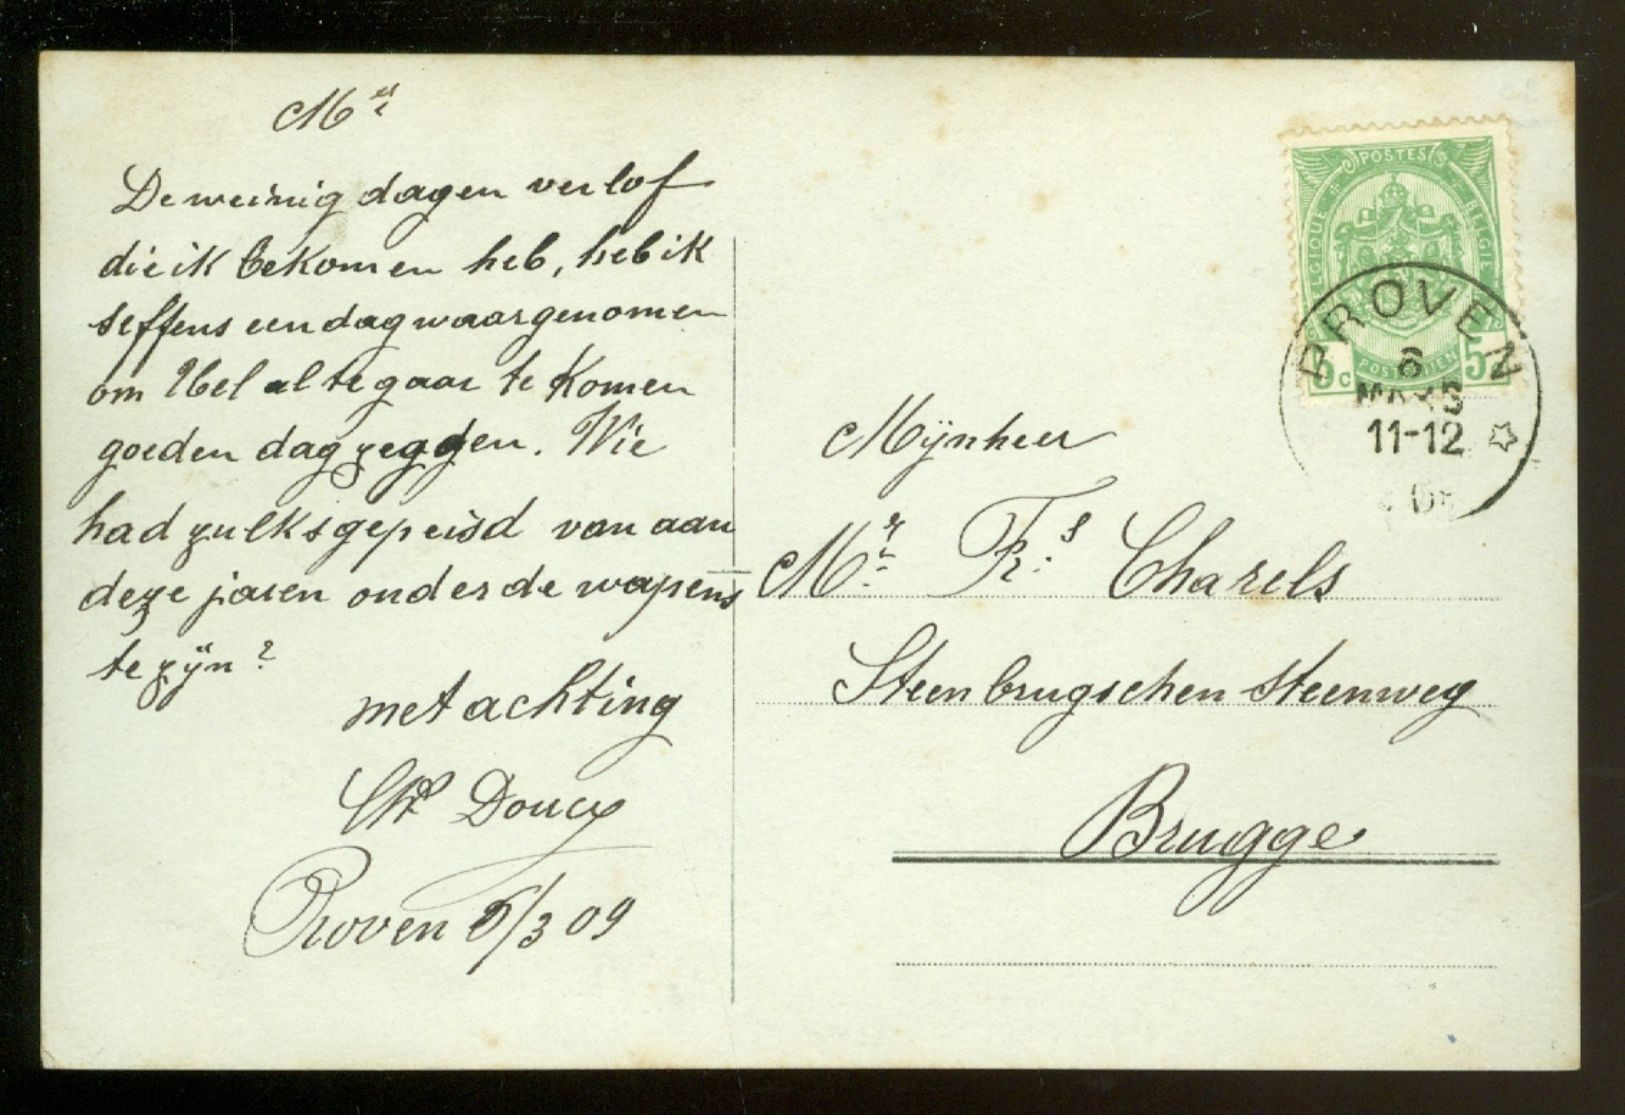 Mr
De weinig dagen verlof
die ik bekomen heb, heb ik
seffens een dag waargenomen
om Ulel al te gaar te komen
goeden dag zeggen. Wie
had zulks gepeisd van aan
deze jaren onder de wapens
te zÿn?
met achting
Doucy
Proven 5/3 09
POSTES
BELGIQUE
BELGIE
POSTERIJEN
5c
5c
PROVEN
6
MARS
11-12
Mÿnheer
Mr. Frs. Charels
Steenbrugschen steenweg
Brugge